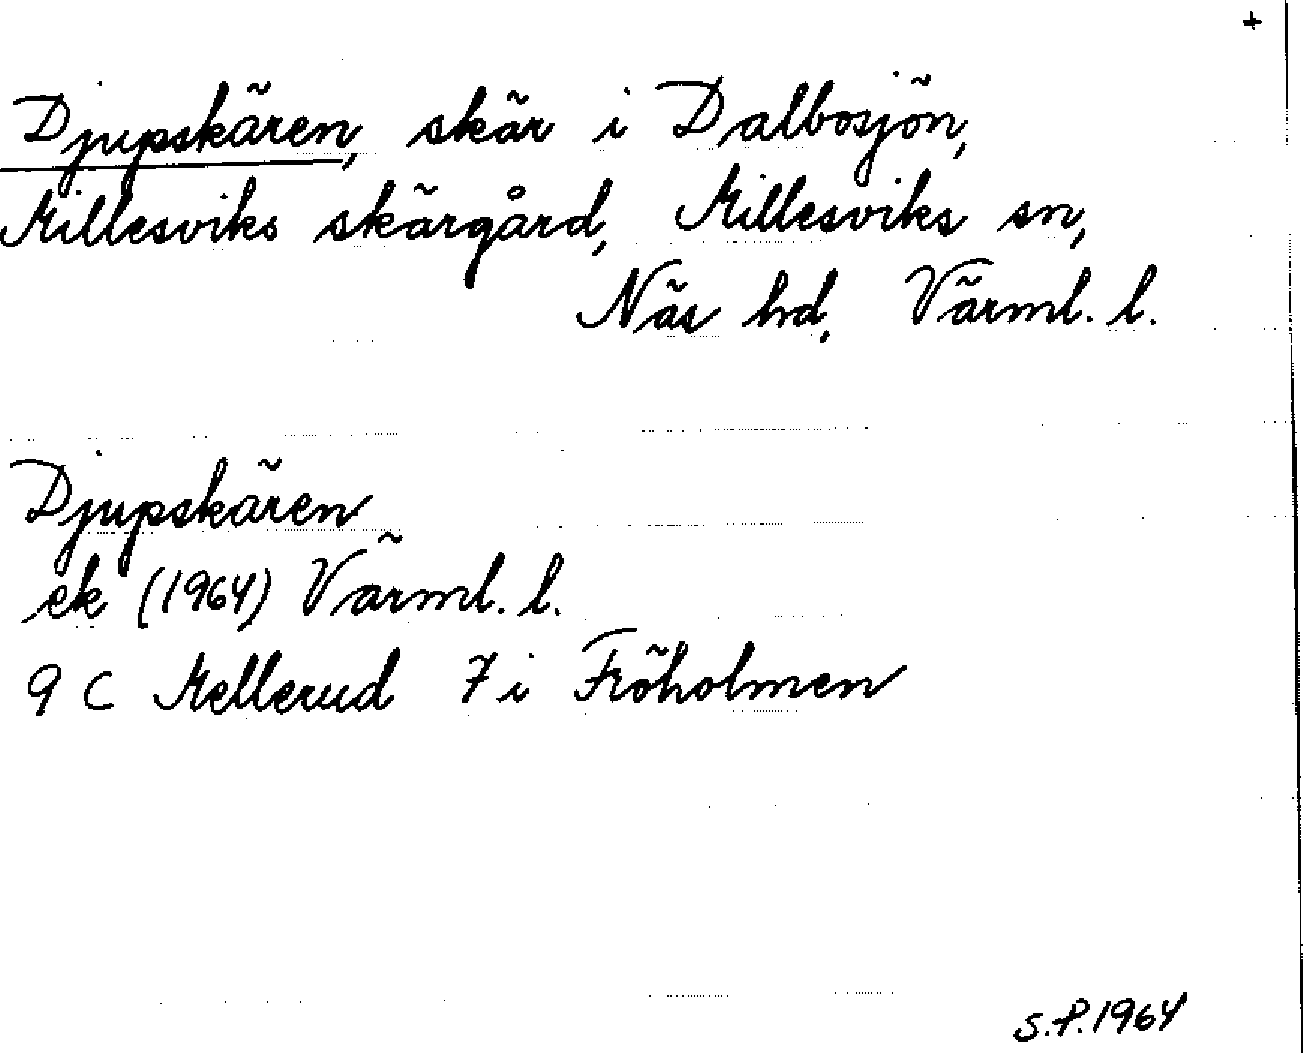 +
Djupskären, skär i Dalbosjön,
Millesviks skärgård, Millesviks sn,
Näs hd, Värml. l.
Djupskären
ek (1964) Värml. l.
9 C Mellerud 7 i Fröholmen
S.P. 1964